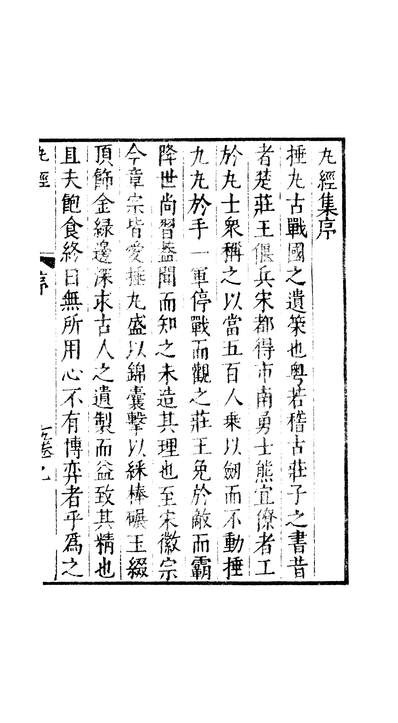 丸經集序
捶丸古戰國之遺策也粤若稽古莊子之書昔
者楚莊王偃兵宋都得市南勇士熊宜僚者工
於丸士衆稱之以當五百人乗以劒而不動捶
九丸於手一軍停戰而觀之莊王免於敵而霸
降世尚習葢聞而知之未造其理也至宋徽宗
今章宗皆愛捶丸盛以錦囊擊以綵棒碾玉綴
頂飾金緑邊深求古人之遺製而益致其精也
且夫飽食終日無所用心不有博弈者乎爲之
丸經
序